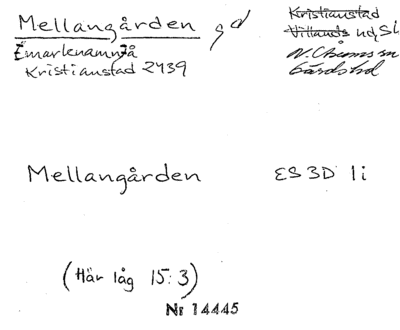 Mellangården gd
Kristianstad 2439
Kristianstad
Villands hd, Sk
N. Åsums sn
Gärdstad
Mellangården ES 3D 1i
(Här låg 15:3)
Nr 14445